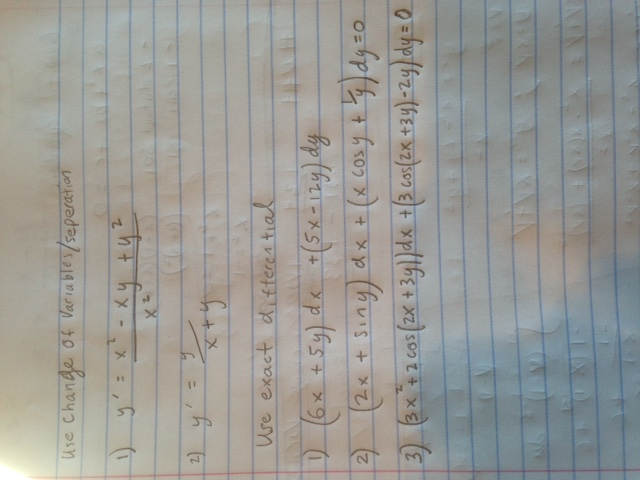 Use Change of Variables/seperation
1) y' = x² - xy + y² / x²
2) y' = y / x + y
Use exact differential
1) (6x + 5y) dx + (5x - 12y) dy
2) (2x + siny) dx + (x cosy + 1/y) dy = 0
3) (3x² + 2cos(2x + 3y)) dx + (3cos(2x + 3y) - 2y) dy = 0